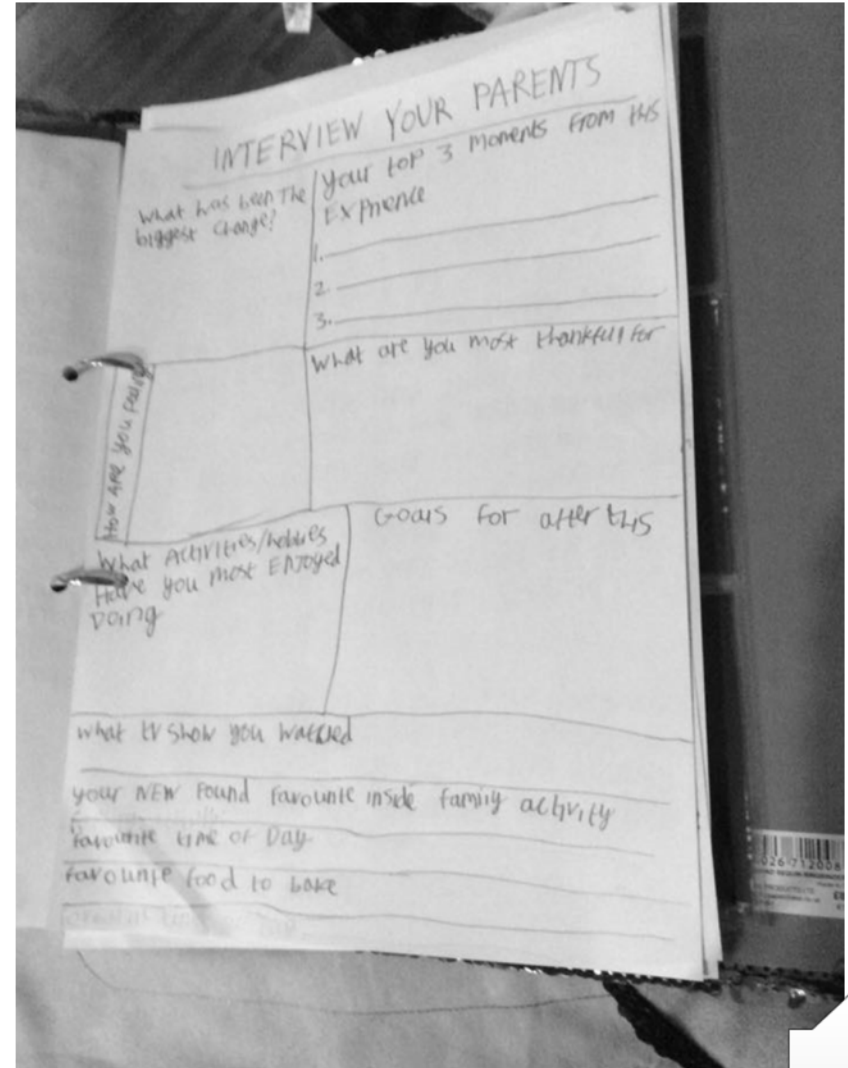 INTERVIEW YOUR PARENTS
What has been The
biggest change?
Your top 3 moments from this
Exprience
1.
2.
3.
How are you feeling
What are you most thankfull for
What Activities/hobbies
Have you most Enjoyed
Doing
Goals for after this
what tv show you watched
your NEW Found favourite inside family activity
favourite time of Day
favourite food to bake
026712008